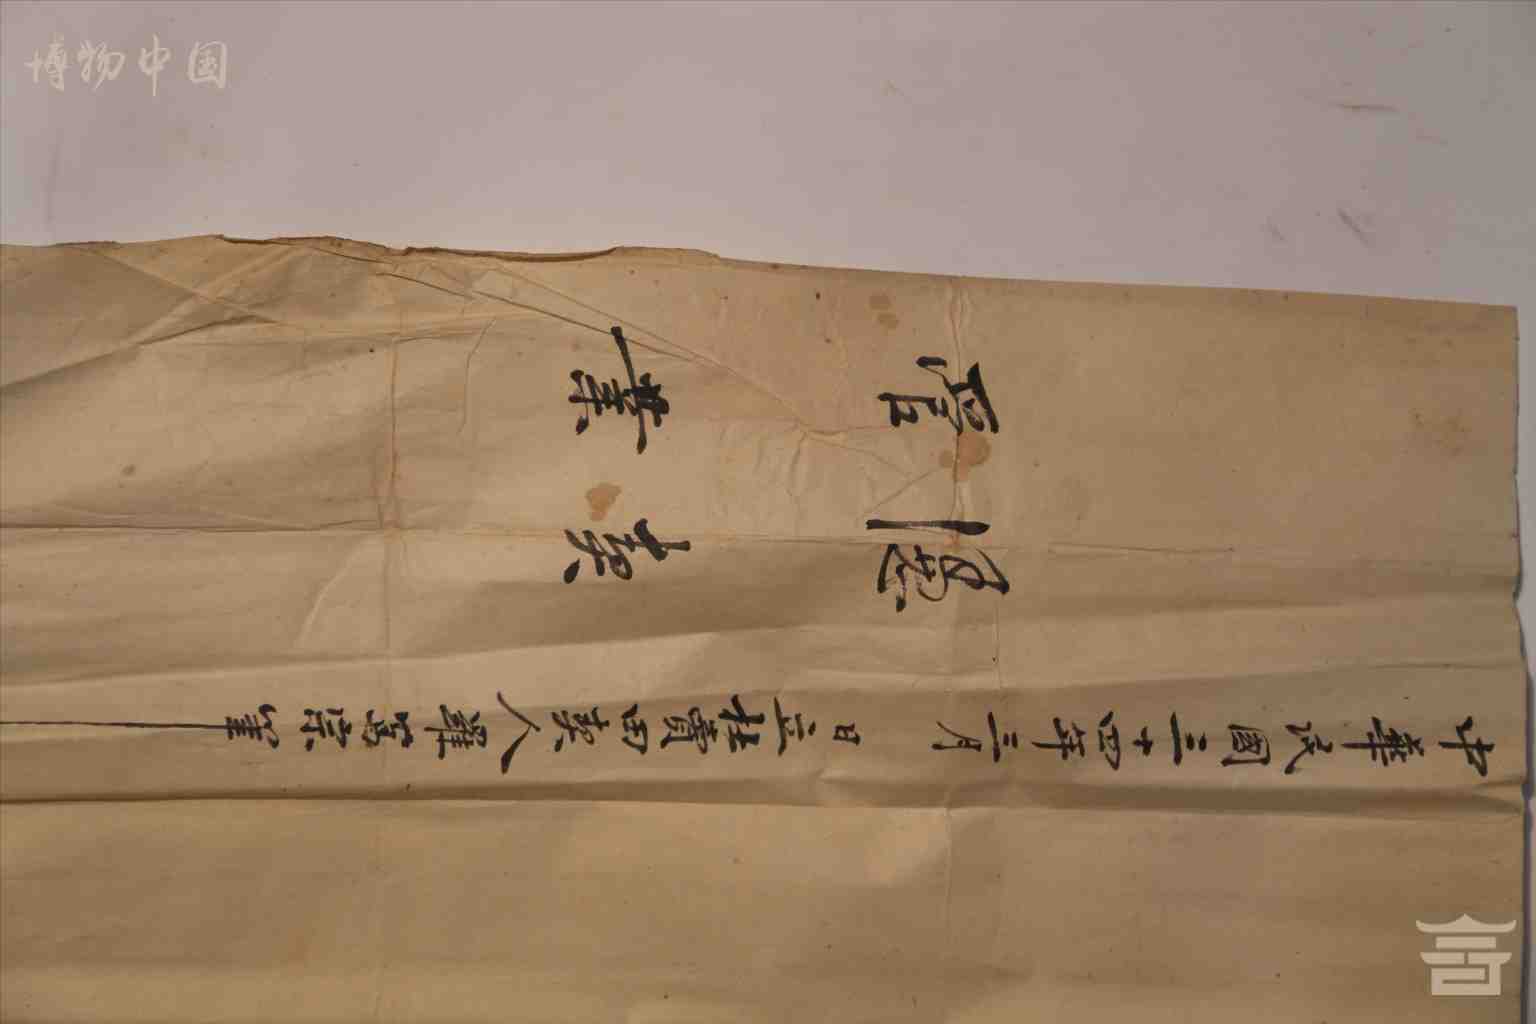 博物中国
中華民國三十四年三月 日立杜賣田契人羅 筆
憑契
管業